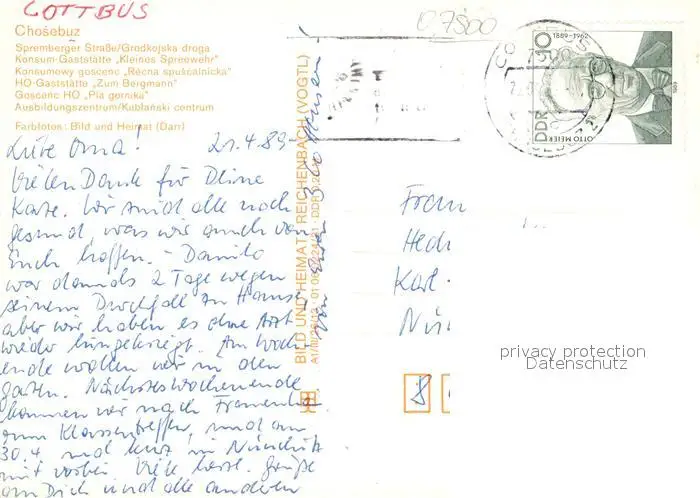 COTTBUS
0,7500
Chośebuz
Spremberger Straße/Grodkojska droga
Konsum-Gaststätte „Kleines Spreewehr"
Konsumowy goscenc „Rěcna spušćalnicka"
HO-Gaststätte „Zum Bergmann"
Goscenc HO „Pla gornika"
Ausbildungszentrum/Kubłański centrum
Farbfotos: Bild und Heimat (Darr)
Liebe Oma! 21.4.89
Vielen Dank für Deine
Karte. Wir sind alle noch
gesund, was wir auch von
Euch hoffen. - Danilo
war damals 2 Tage wegen
seinem Durchfall zu Hause
aber wir haben es ohne Arzt
wieder hingekriegt. Am Woch
ende wollen wir in den
Garten. Nächstes Wochenende
kommen wir nach
zum Klassentreffen, und am
30.4. sind kurz in
mit vorbei. Viele herzl. Grüße
an Dich und alle anderen
von Euren 3
BILD UND HEIMAT REICHENBACH (VOGTL)
A1/III/26/13 01 06 DDR
10
1889-1962
DDR
OTTO MEIER
1989
7500
Frau
Hedi
Karl
8
privacy protection
Datenschutz